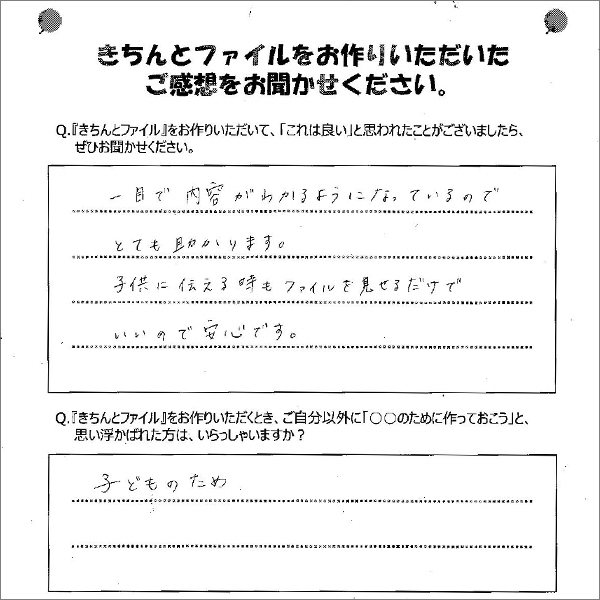 きちんとファイルをお作りいただいた
ご感想をお聞かせください。
Q.『きちんとファイル』をお作りいただいて、「これは良い」と思われたことがございましたら、
ぜひお聞かせください。
一目で内容がわかるようになっているので
とても助かります。
子供に伝える時もファイルを見せるだけで
いいので安心です。
Q.『きちんとファイル』をお作りいただくとき、ご自分以外に「〇〇のために作っておこう」と、
思い浮かばれた方は、いらっしゃいますか？
子どものため